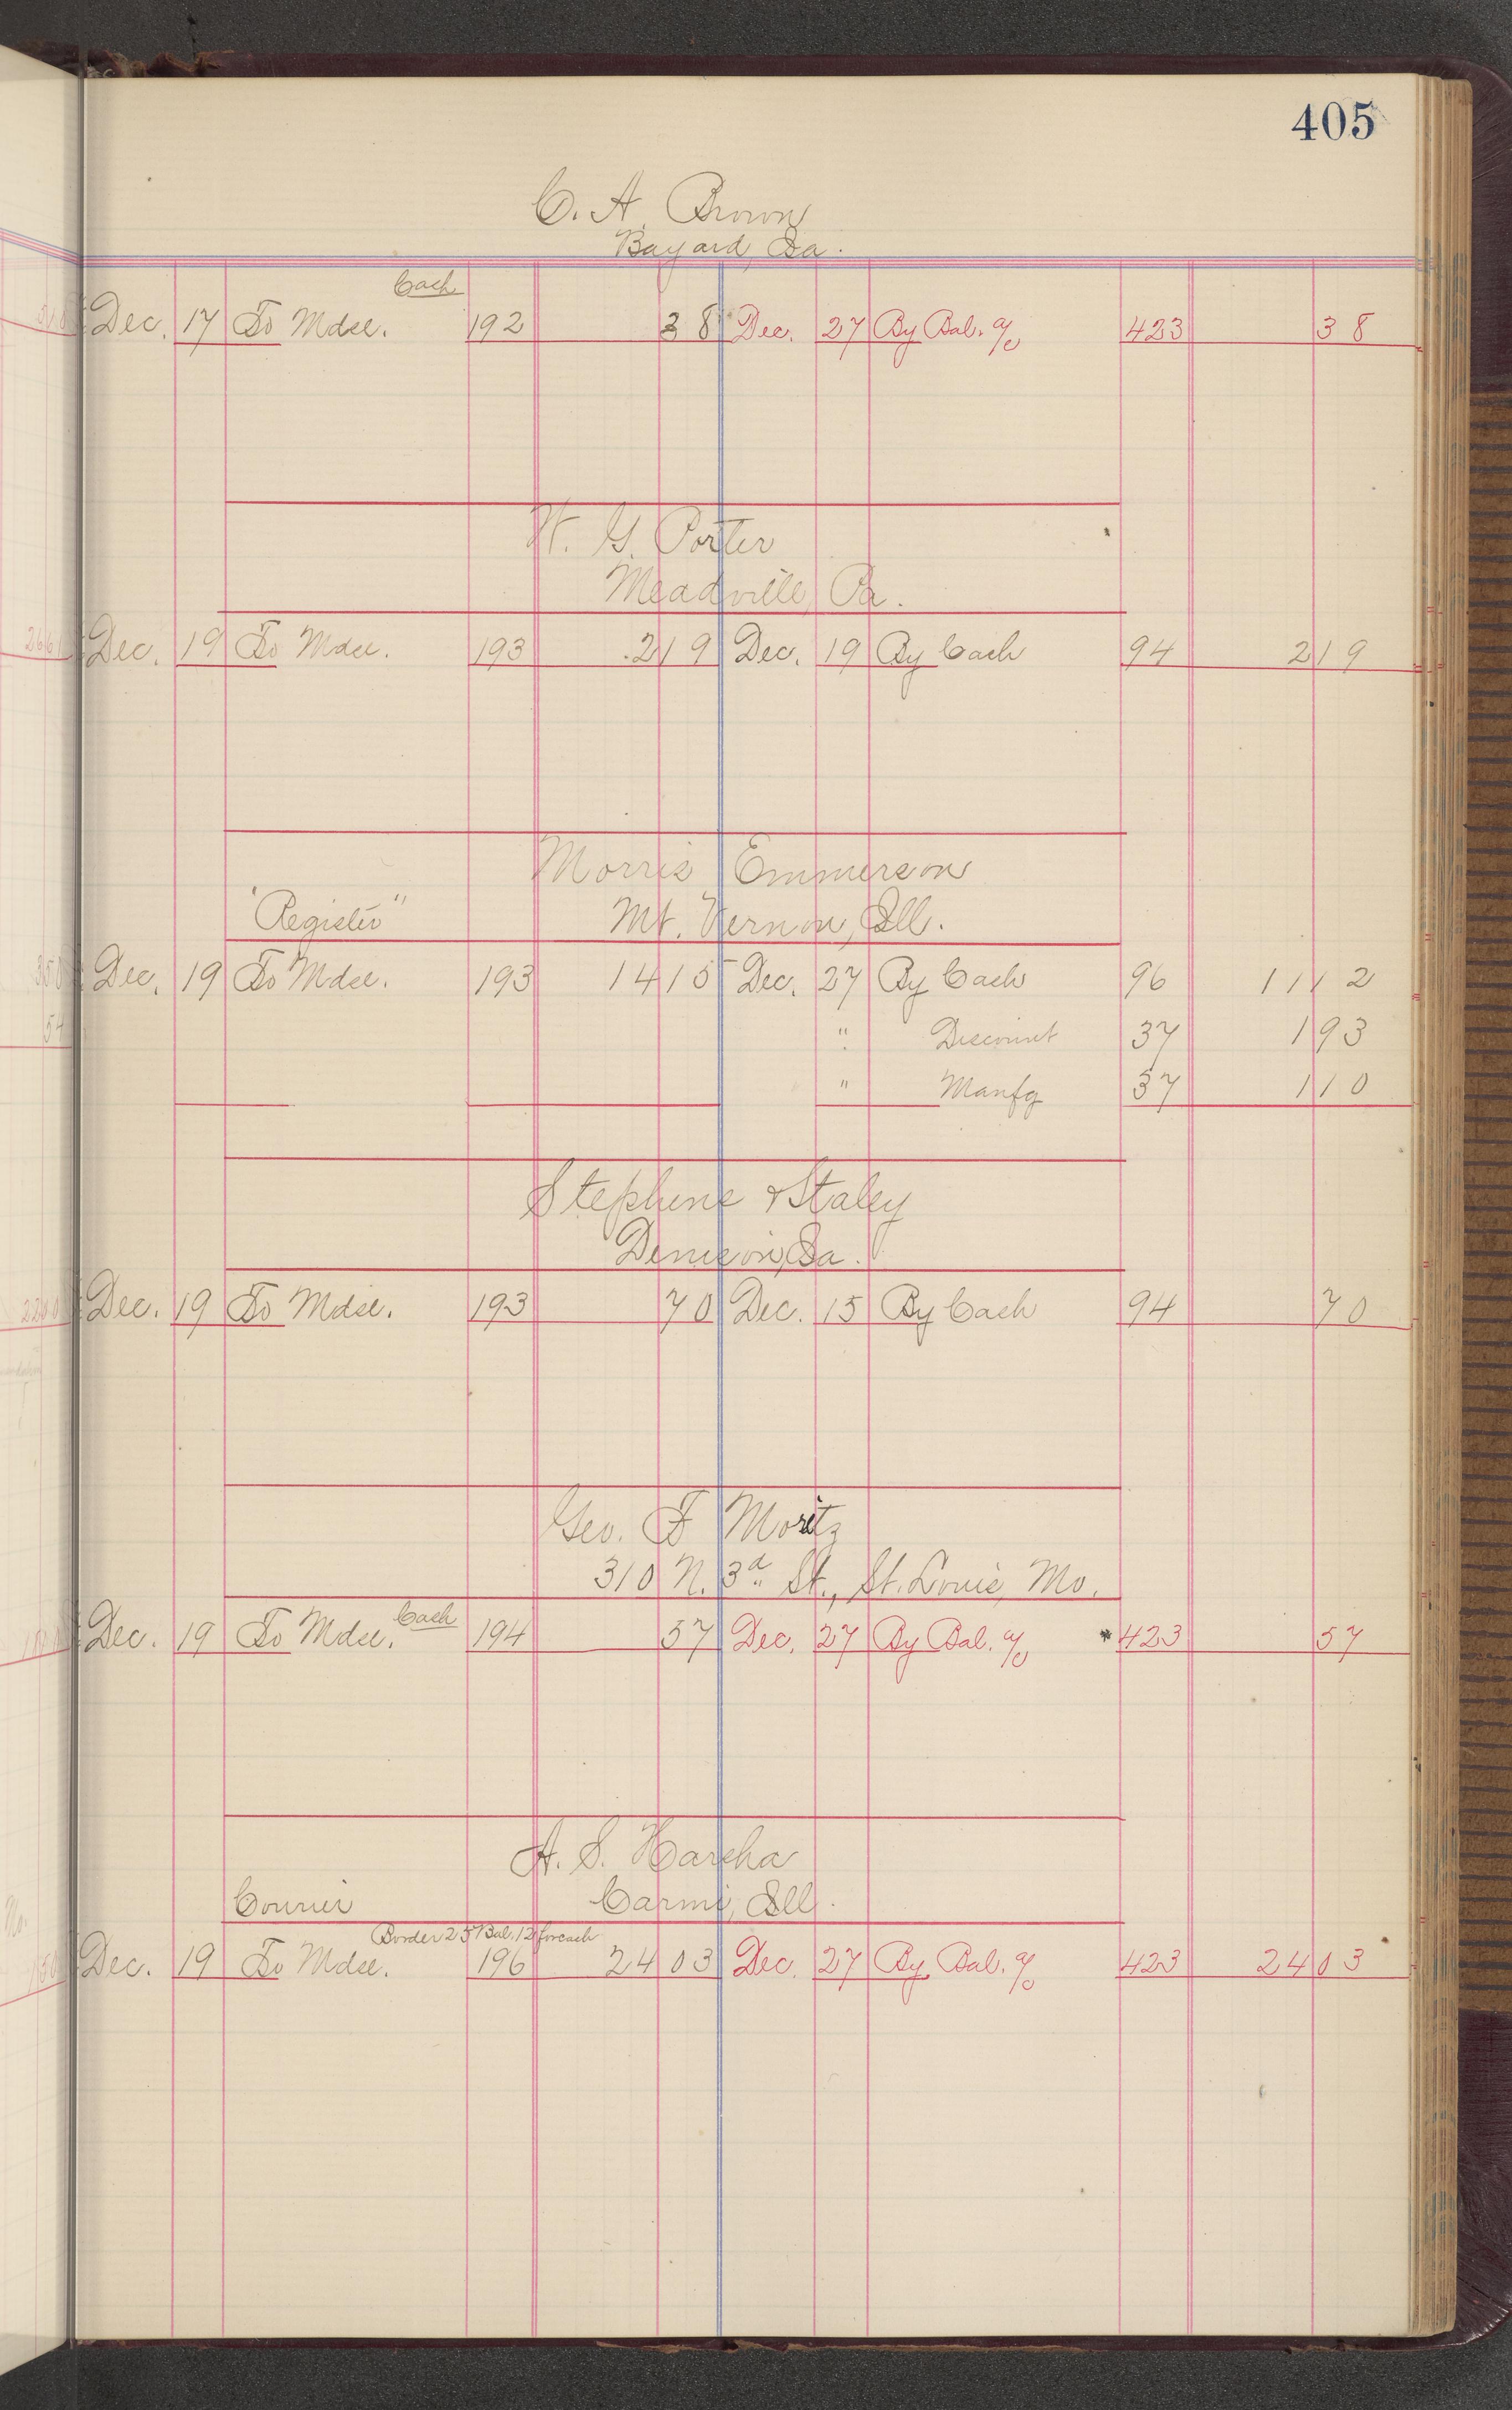 405
C. A. Brown
Bayard, Ia.
Cash
Dec. 17 To Mdse. 192 38 Dec. 27 By Bal. a/c 423 38
W. G. Porter
Meadville, Pa.
Dec. 19 To Mdse. 193 2 19 Dec. 19 By Cash 94 2 19
Morris Emmerson
"Register" Mt. Vernon, Ill.
Dec. 19 To Mdse. 193 14 15 Dec. 27 By Cash 96 11 12
" Discount 37 1 93
" Manfg 37 1 10
Stephens & Staley
Denison, Ia.
Dec. 19 To Mdse. 193 70 Dec. 15 By Cash 94 70
Geo. F Moritz
310 N. 3d St., St. Louis, Mo.
Cash
Dec. 19 To Mdse. 194 57 Dec. 27 By Bal. a/c 423 57
A. S. Harsha
Courier Carmi, Ill.
Border 25 Bal. 12 for cash
Dec. 19 To Mdse. 196 24 03 Dec. 27 By Bal. a/c 423 24 03